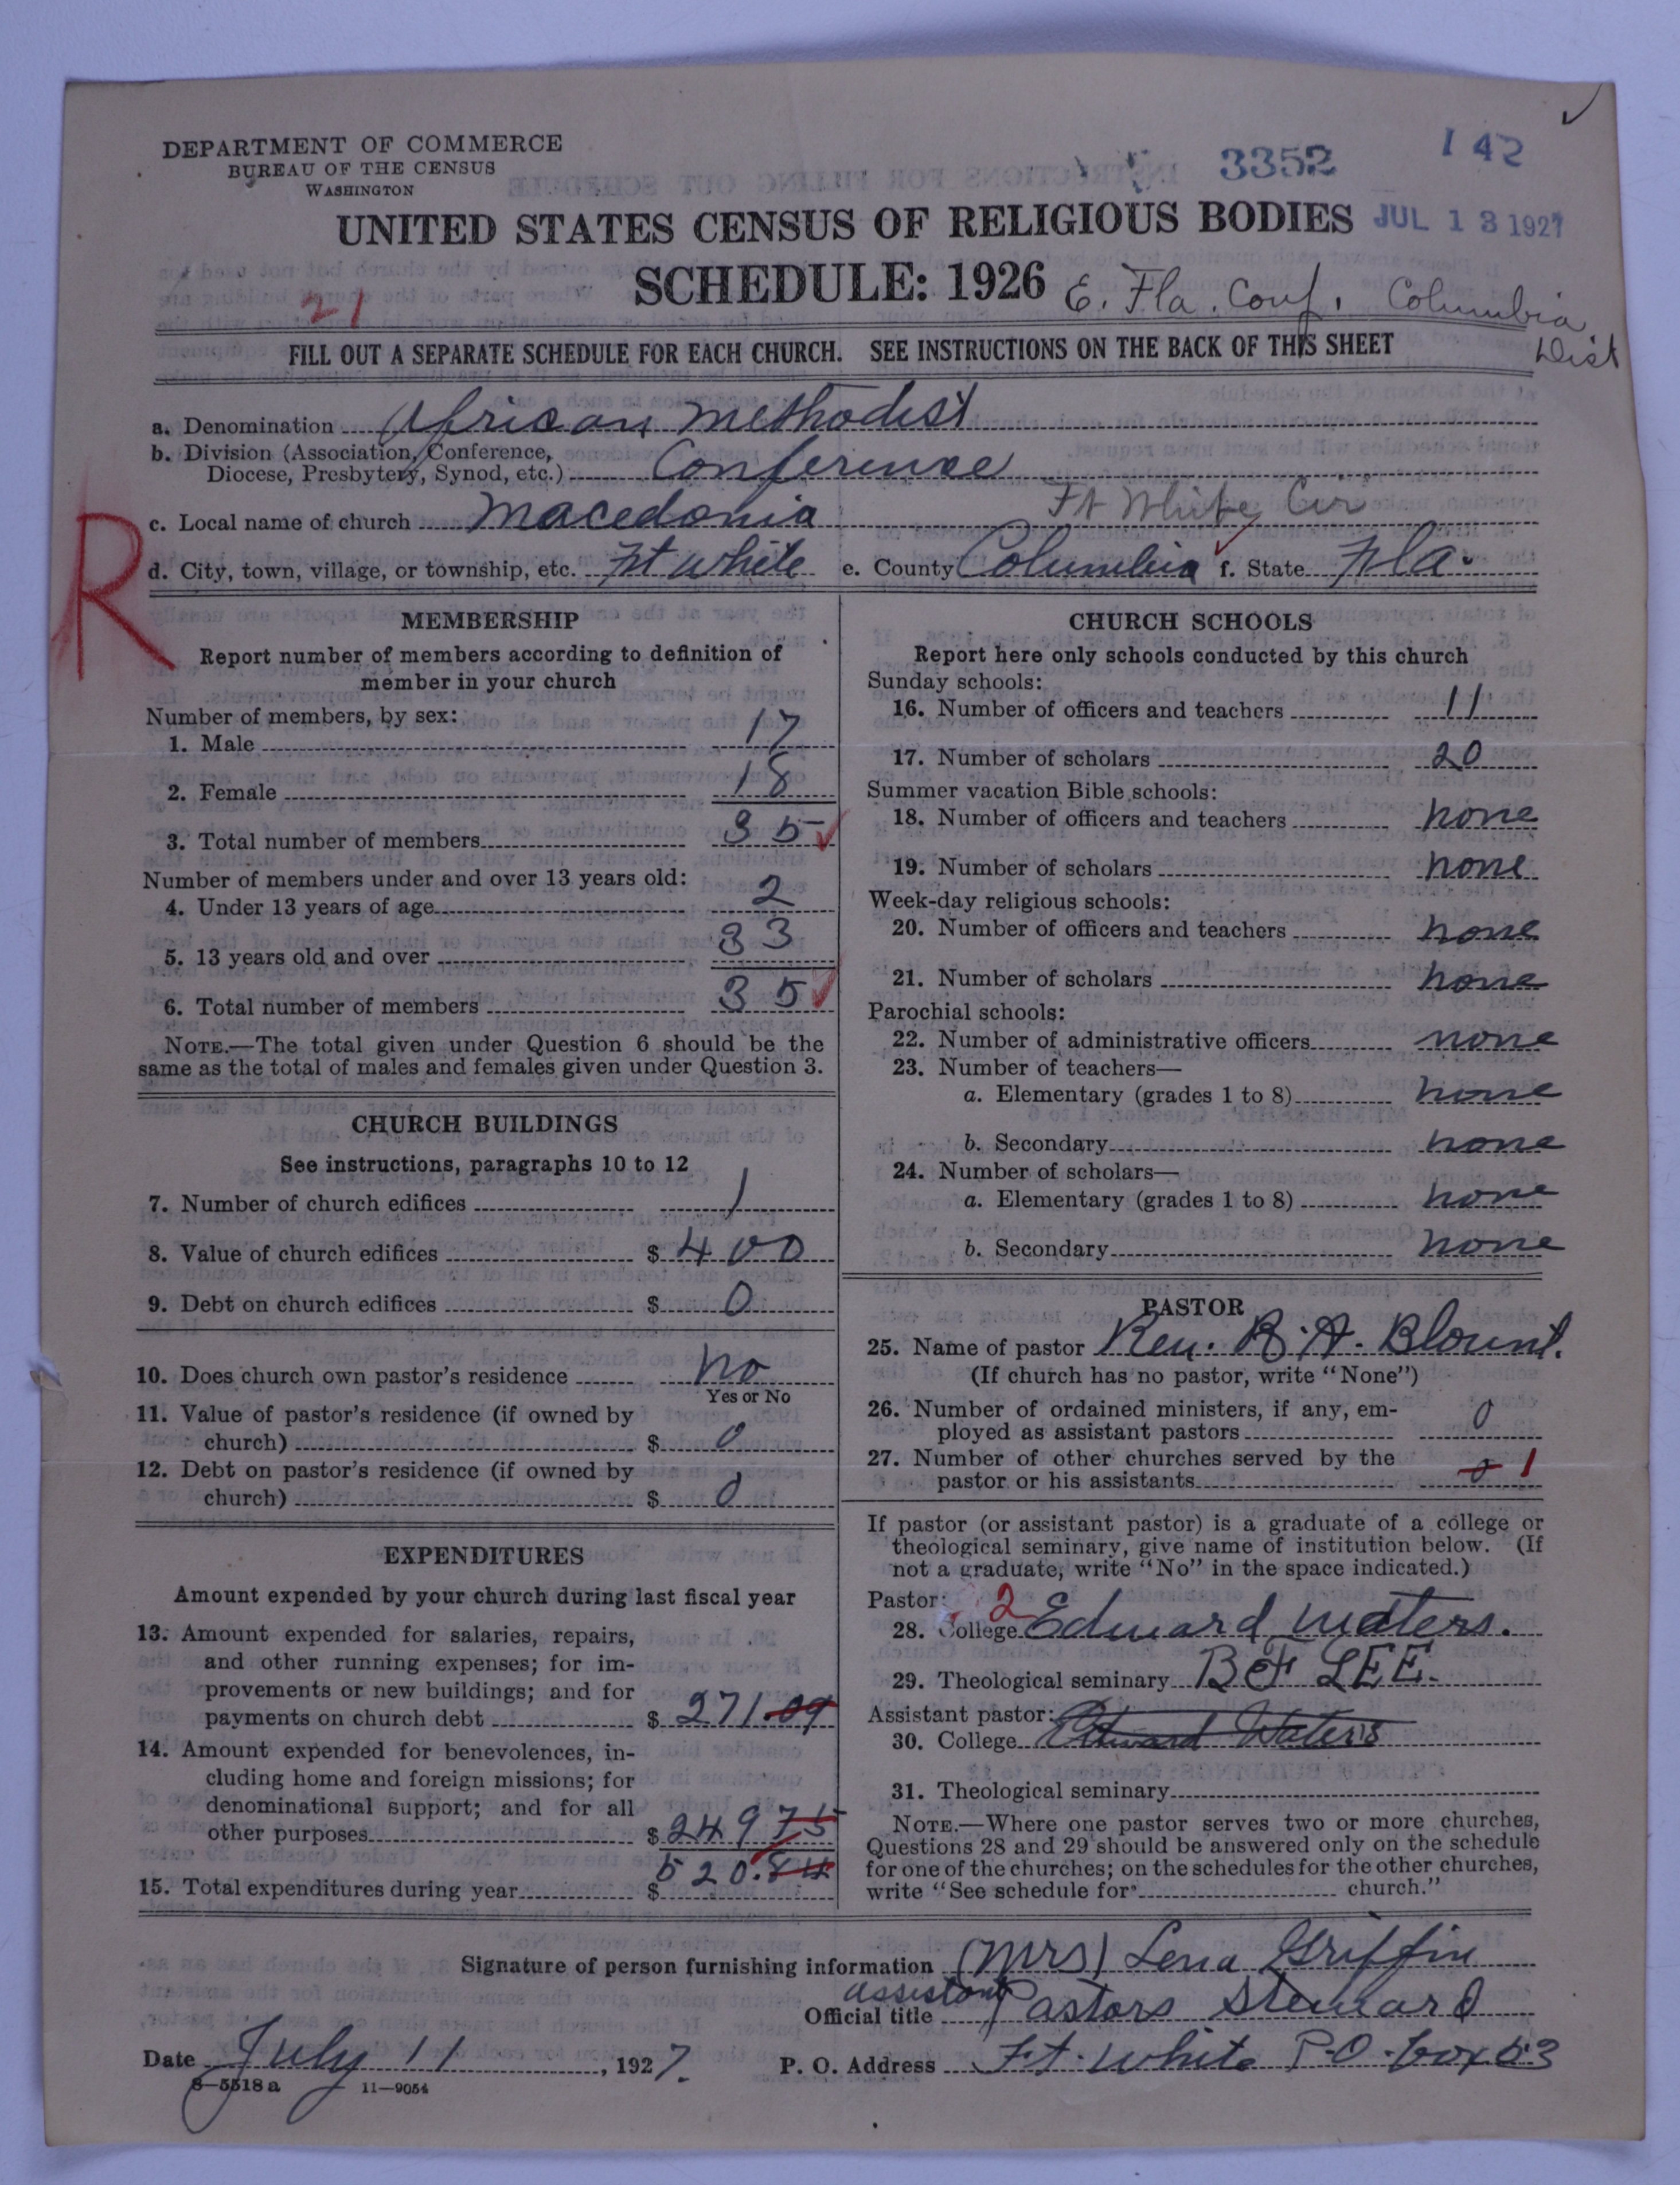 DEPARTMENT OF COMMERCE
BUREAU OF THE CENSUS
WASHINGTON
3352
142
UNITED STATES CENSUS OF RELIGIOUS BODIES
JUL 13 1927
SCHEDULE: 1926
E. Fla. Conf. Columbia Dist
21
FILL OUT A SEPARATE SCHEDULE FOR EACH CHURCH. SEE INSTRUCTIONS ON THE BACK OF THIS SHEET
a. Denomination African Methodist
b. Division (Association, Conference,
Diocese, Presbytery, Synod, etc.) Conference
c. Local name of church Macedonia Ft White Cir
R
d. City, town, village, or township, etc. Ft White e. County Columbia f. State Fla.
MEMBERSHIP
Report number of members according to definition of
member in your church
Number of members, by sex:
1. Male 17
2. Female 18
3. Total number of members 35
Number of members under and over 13 years old:
4. Under 13 years of age 2
5. 13 years old and over 33
6. Total number of members 35
NOTE.—The total given under Question 6 should be the
same as the total of males and females given under Question 3.
CHURCH BUILDINGS
See instructions, paragraphs 10 to 12
7. Number of church edifices 1
8. Value of church edifices $ 400
9. Debt on church edifices $ 0
10. Does church own pastor's residence no
Yes or No
11. Value of pastor's residence (if owned by
church) $ 0
12. Debt on pastor's residence (if owned by
church) $ 0
EXPENDITURES
Amount expended by your church during last fiscal year
13. Amount expended for salaries, repairs,
and other running expenses; for im-
provements or new buildings; and for
payments on church debt $ 271.09
14. Amount expended for benevolences, in-
cluding home and foreign missions; for
denominational support; and for all
other purposes $ 249 75
15. Total expenditures during year $ 520.84
CHURCH SCHOOLS
Report here only schools conducted by this church
Sunday schools:
16. Number of officers and teachers 11
17. Number of scholars 20
Summer vacation Bible schools:
18. Number of officers and teachers none
19. Number of scholars none
Week-day religious schools:
20. Number of officers and teachers none
21. Number of scholars none
Parochial schools:
22. Number of administrative officers none
23. Number of teachers—
a. Elementary (grades 1 to 8) none
b. Secondary none
24. Number of scholars—
a. Elementary (grades 1 to 8) none
b. Secondary none
PASTOR
25. Name of pastor Rev. R. A. Blount.
(If church has no pastor, write "None")
26. Number of ordained ministers, if any, em-
ployed as assistant pastors 0
27. Number of other churches served by the
pastor or his assistants 0 1
If pastor (or assistant pastor) is a graduate of a college or
theological seminary, give name of institution below. (If
not a graduate, write "No" in the space indicated.)
Pastor: 2
28. College Edward Waters.
29. Theological seminary B F LEE.
Assistant pastor:
30. College Edward Waters
31. Theological seminary
NOTE.—Where one pastor serves two or more churches,
Questions 28 and 29 should be answered only on the schedule
for one of the churches; on the schedules for the other churches,
write "See schedule for church."
Signature of person furnishing information (Mrs) Lena Griffin
Official title assistant Pastors Steward
Date July 11, 1927. P. O. Address Ft. White P.O. box 53
8—5518 a 11—9054